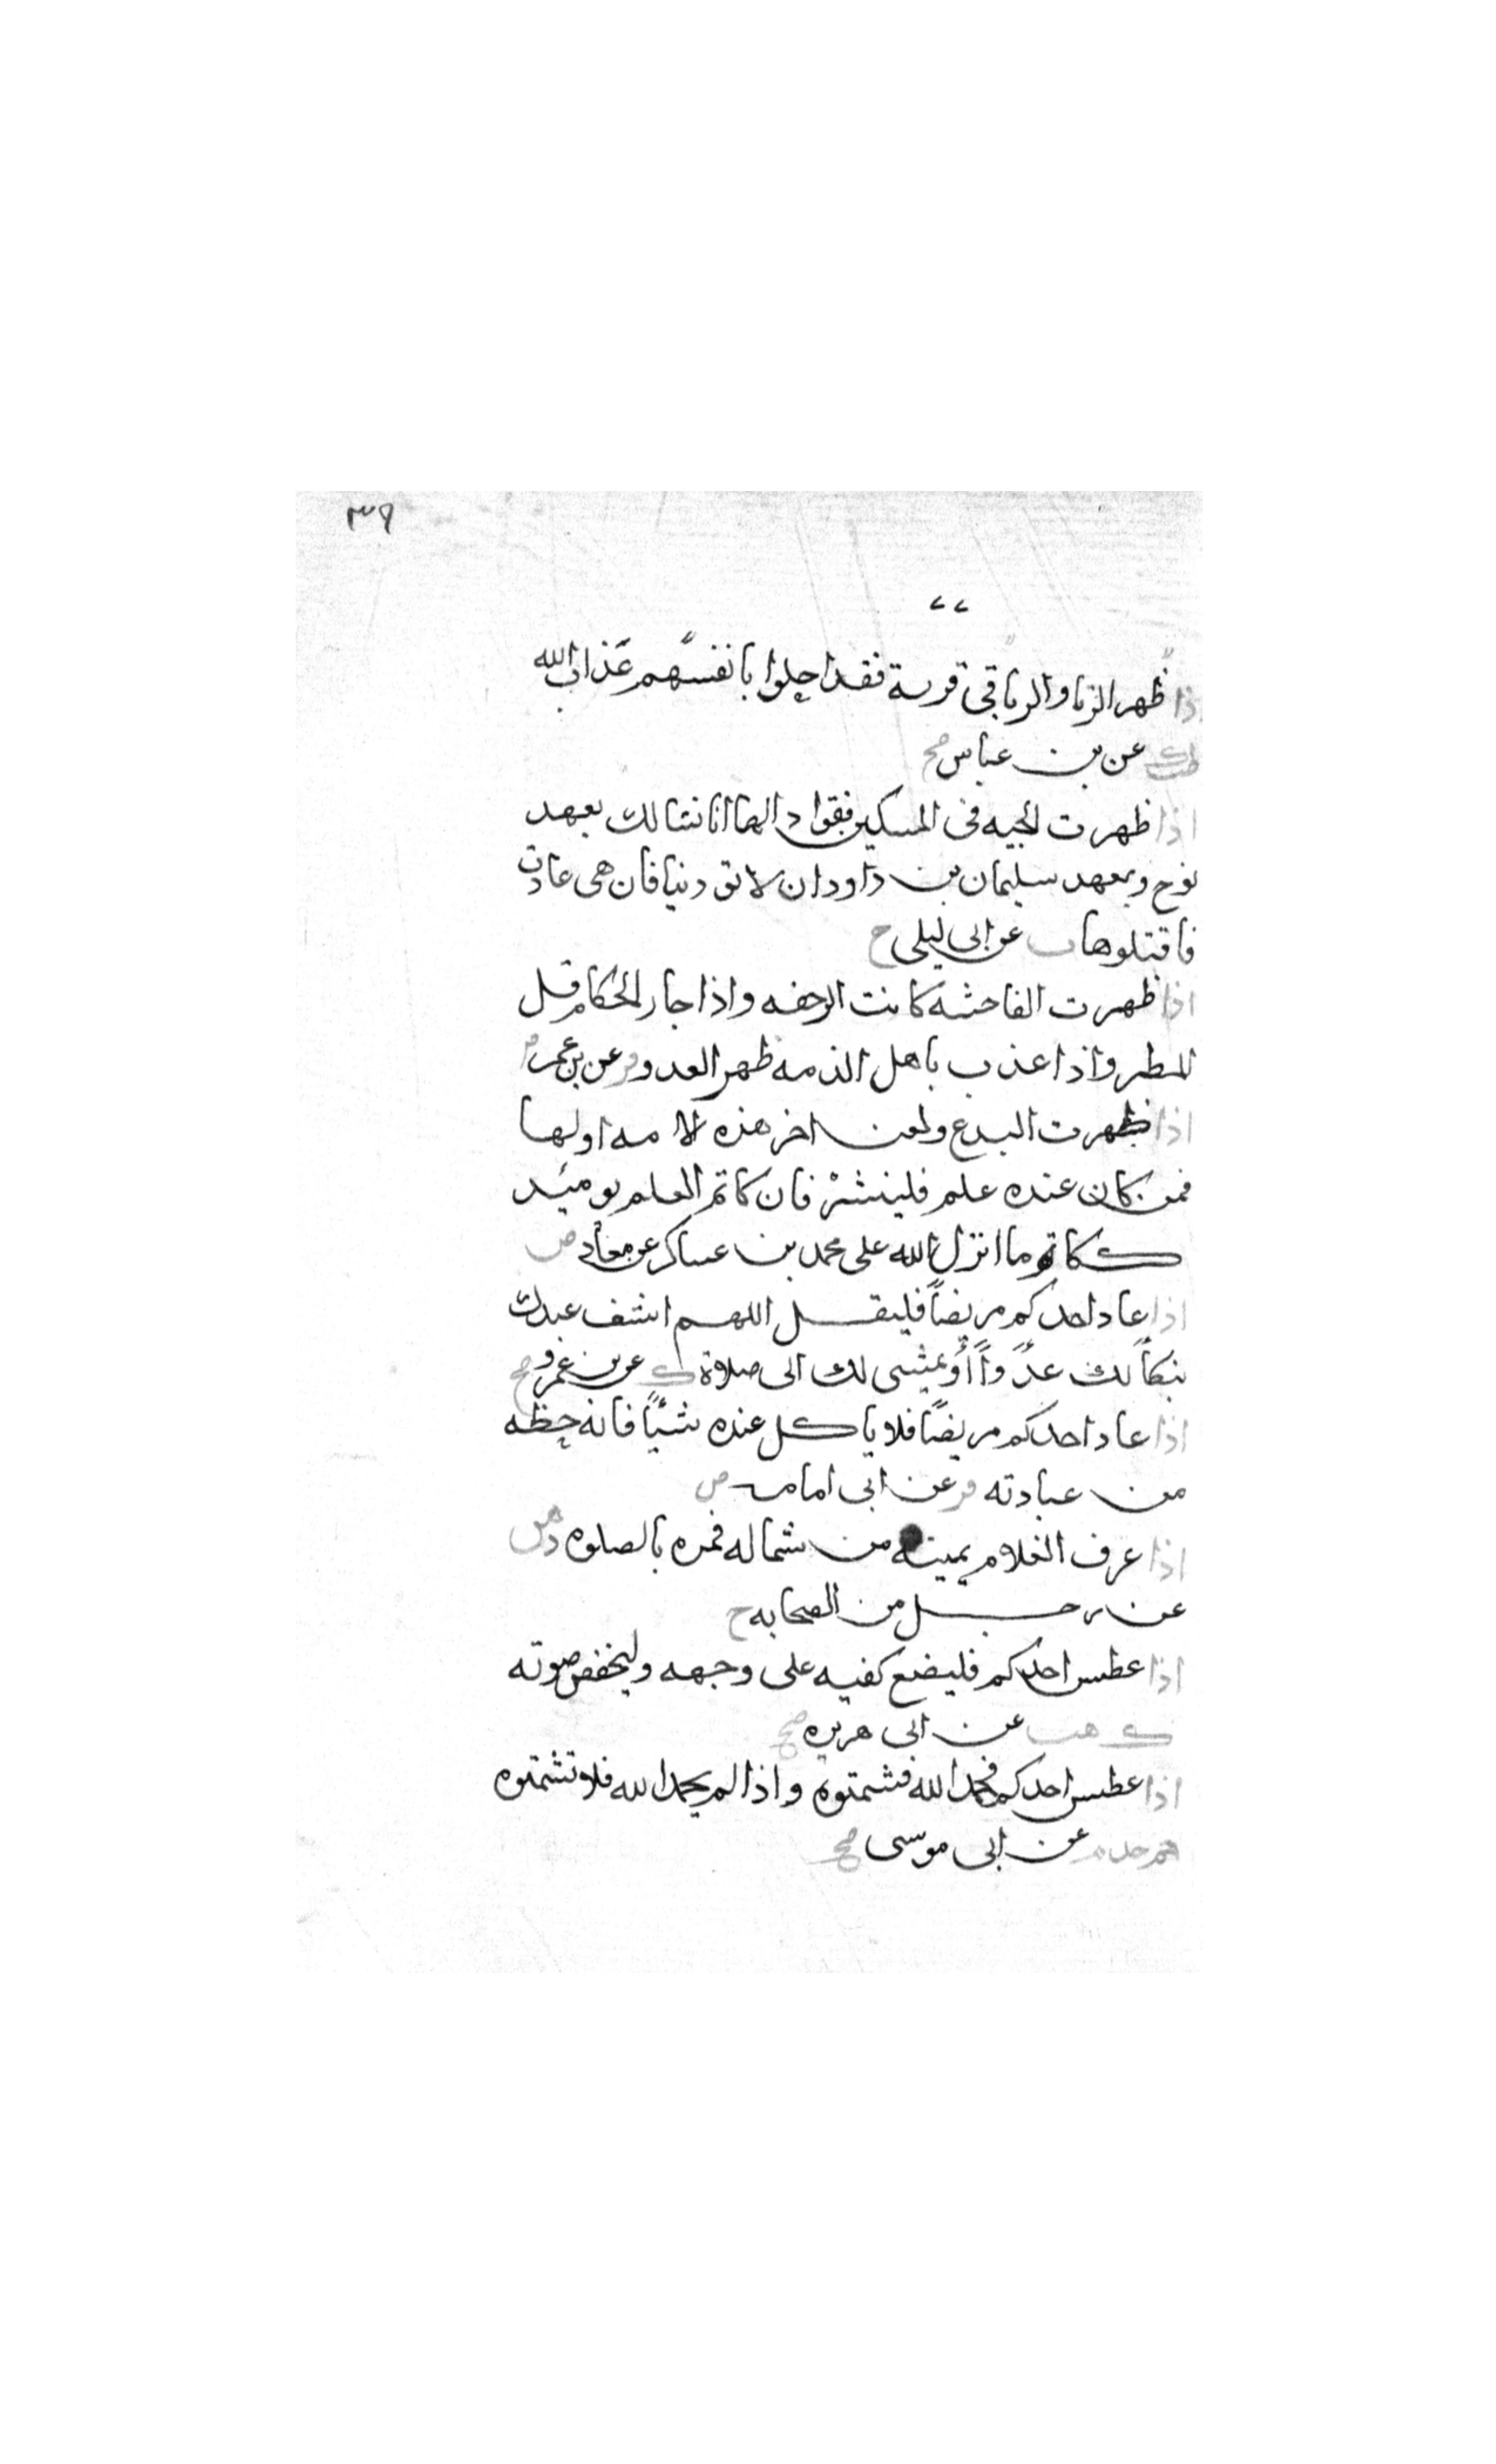 ٣٩
اذا ظهر الزنا والربا فى قرية فقد احلوا بانفسهم عذاب الله
طب ك عن بن عباس صح
اذا ظهرت الحيه فى المسكين فقولوا لها انا نسالك بعهد
نوح وبعهد سليمان بن داود ان لا توذينا فان هى عادت
فاقتلوها ت عن ابى ليلى ح
اذا ظهرت الفاحشه كانت الرجفه واذا جار الحكام قل
المطر واذا غدر باهل الذمه ظهر العدو فر عن بن عمر
اذا ظهرت البدع ولعن اخر هذه الامه اولها
فمن كان عنده علم فلينشره فان كاتم العلم يوميد
ككاتم ما انزل الله على محمد بن عساكر عن معاذ ض
اذا عاد احدكم مريضاً فليقل اللهم اشف عبدك
ينكأ لك عدواً أو يمشى لك الى صلاة ك عن بن عمرو صح
اذا عاد احدكم مريضًا فلا ياكل عنده شيًا فانه حظه
من عيادته فر عن ابى امامه ض
اذا عرف الغلام يمينه من شماله فمره بالصلوه د هق
عن رجل من الصحابه ح
اذا عطس احدكم فليضع كفيه على وجهه وليخفض صوته
ك هب عن ابى هريره صح
اذا عطس احدكم فحمد الله فشمتوه واذا لم يحمد الله فلا تشمتوه
حم خد م عن ابى موسى صح